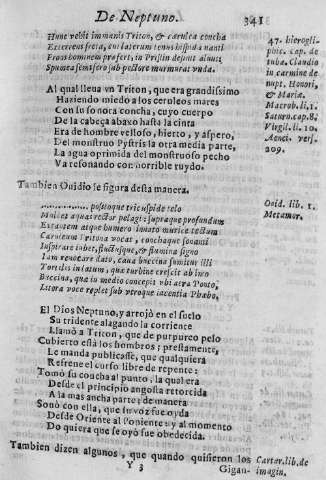 De Neptuno.
341
Hunc vehit immanis Triton, & cærulea concha
Exterrens freta, cui laterum tenus hispida nanti
Frons hominem præfert, in Pristin desinit aluus:
Spumea semifero sub pectore murmurat vnda.
47. hierogli-
phic. cap. de
tuba. Claudio
in carmine de
nupt. Honori,
& Mariæ.
Macrob. li. 1.
Saturo. cap. 8.
Virgil. li. 10.
Aenei. vers.
209.
Al qual lleua vn Triton, que era grandissimo
Haziendo miedo a los ceruleos mares
Con su sonora concha, cuyo cuerpo
De la cabeça abaxo hasta la cinta
Era de hombre velloso, hierto, y aspero,
Del monstruo Pystris la otra media parte,
La agua oprimida del monstruoso pecho
Va resonando con horrible ruydo.
Tambien Ouidio le figura desta manera.
Ouid. lib. 1.
Metamor.
............ positoque tricuspide telo
Mulcet aquas rector pelagi: supraque profundum
Extantem atque humero innato murice tectum
Cæruleum Tritona vocat, conchaque sonanti
Inspirare iubet, fluctusque, & flumina signo
Iam reuocare dato, caua buccina sumitur illi
Tortilis in latum, quæ turbine crescit ab imo
Buccina, quæ in medio concepit vbi aera Ponto,
Litora voce replet sub vtroque iacentia Phœbo,
El Dios Neptuno, y arrojò en el suelo
Su tridente alagando la corriente
Llamò a Triton, que de purpureo pelo
Cubierto està los hombros; prestamente,
Le manda publicasse, que qualquiera
Refrene el curso libre de repente:
Tomò su concha al punto, la qual era
Desde el principio angosta retorcida
A la mas ancha parte; de manera
Sonò con ella, que su voz fue oyda
Desde Oriente al Poniente: y al momento
Do quiera que se oyò fue obedecida.
Tambien dizen algunos, que quando quisieron los
Cartar. lib. de
imagin.
Y 3
Gigan-